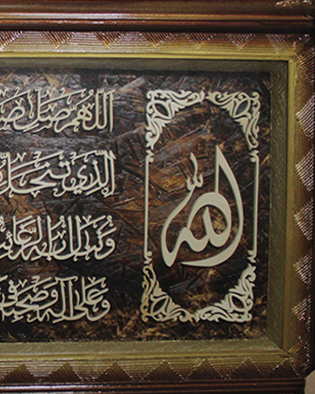 الله
اللهم صل صلاة
الذي تنحل
وتنال به الرغائب
وعلى آله وصحبه